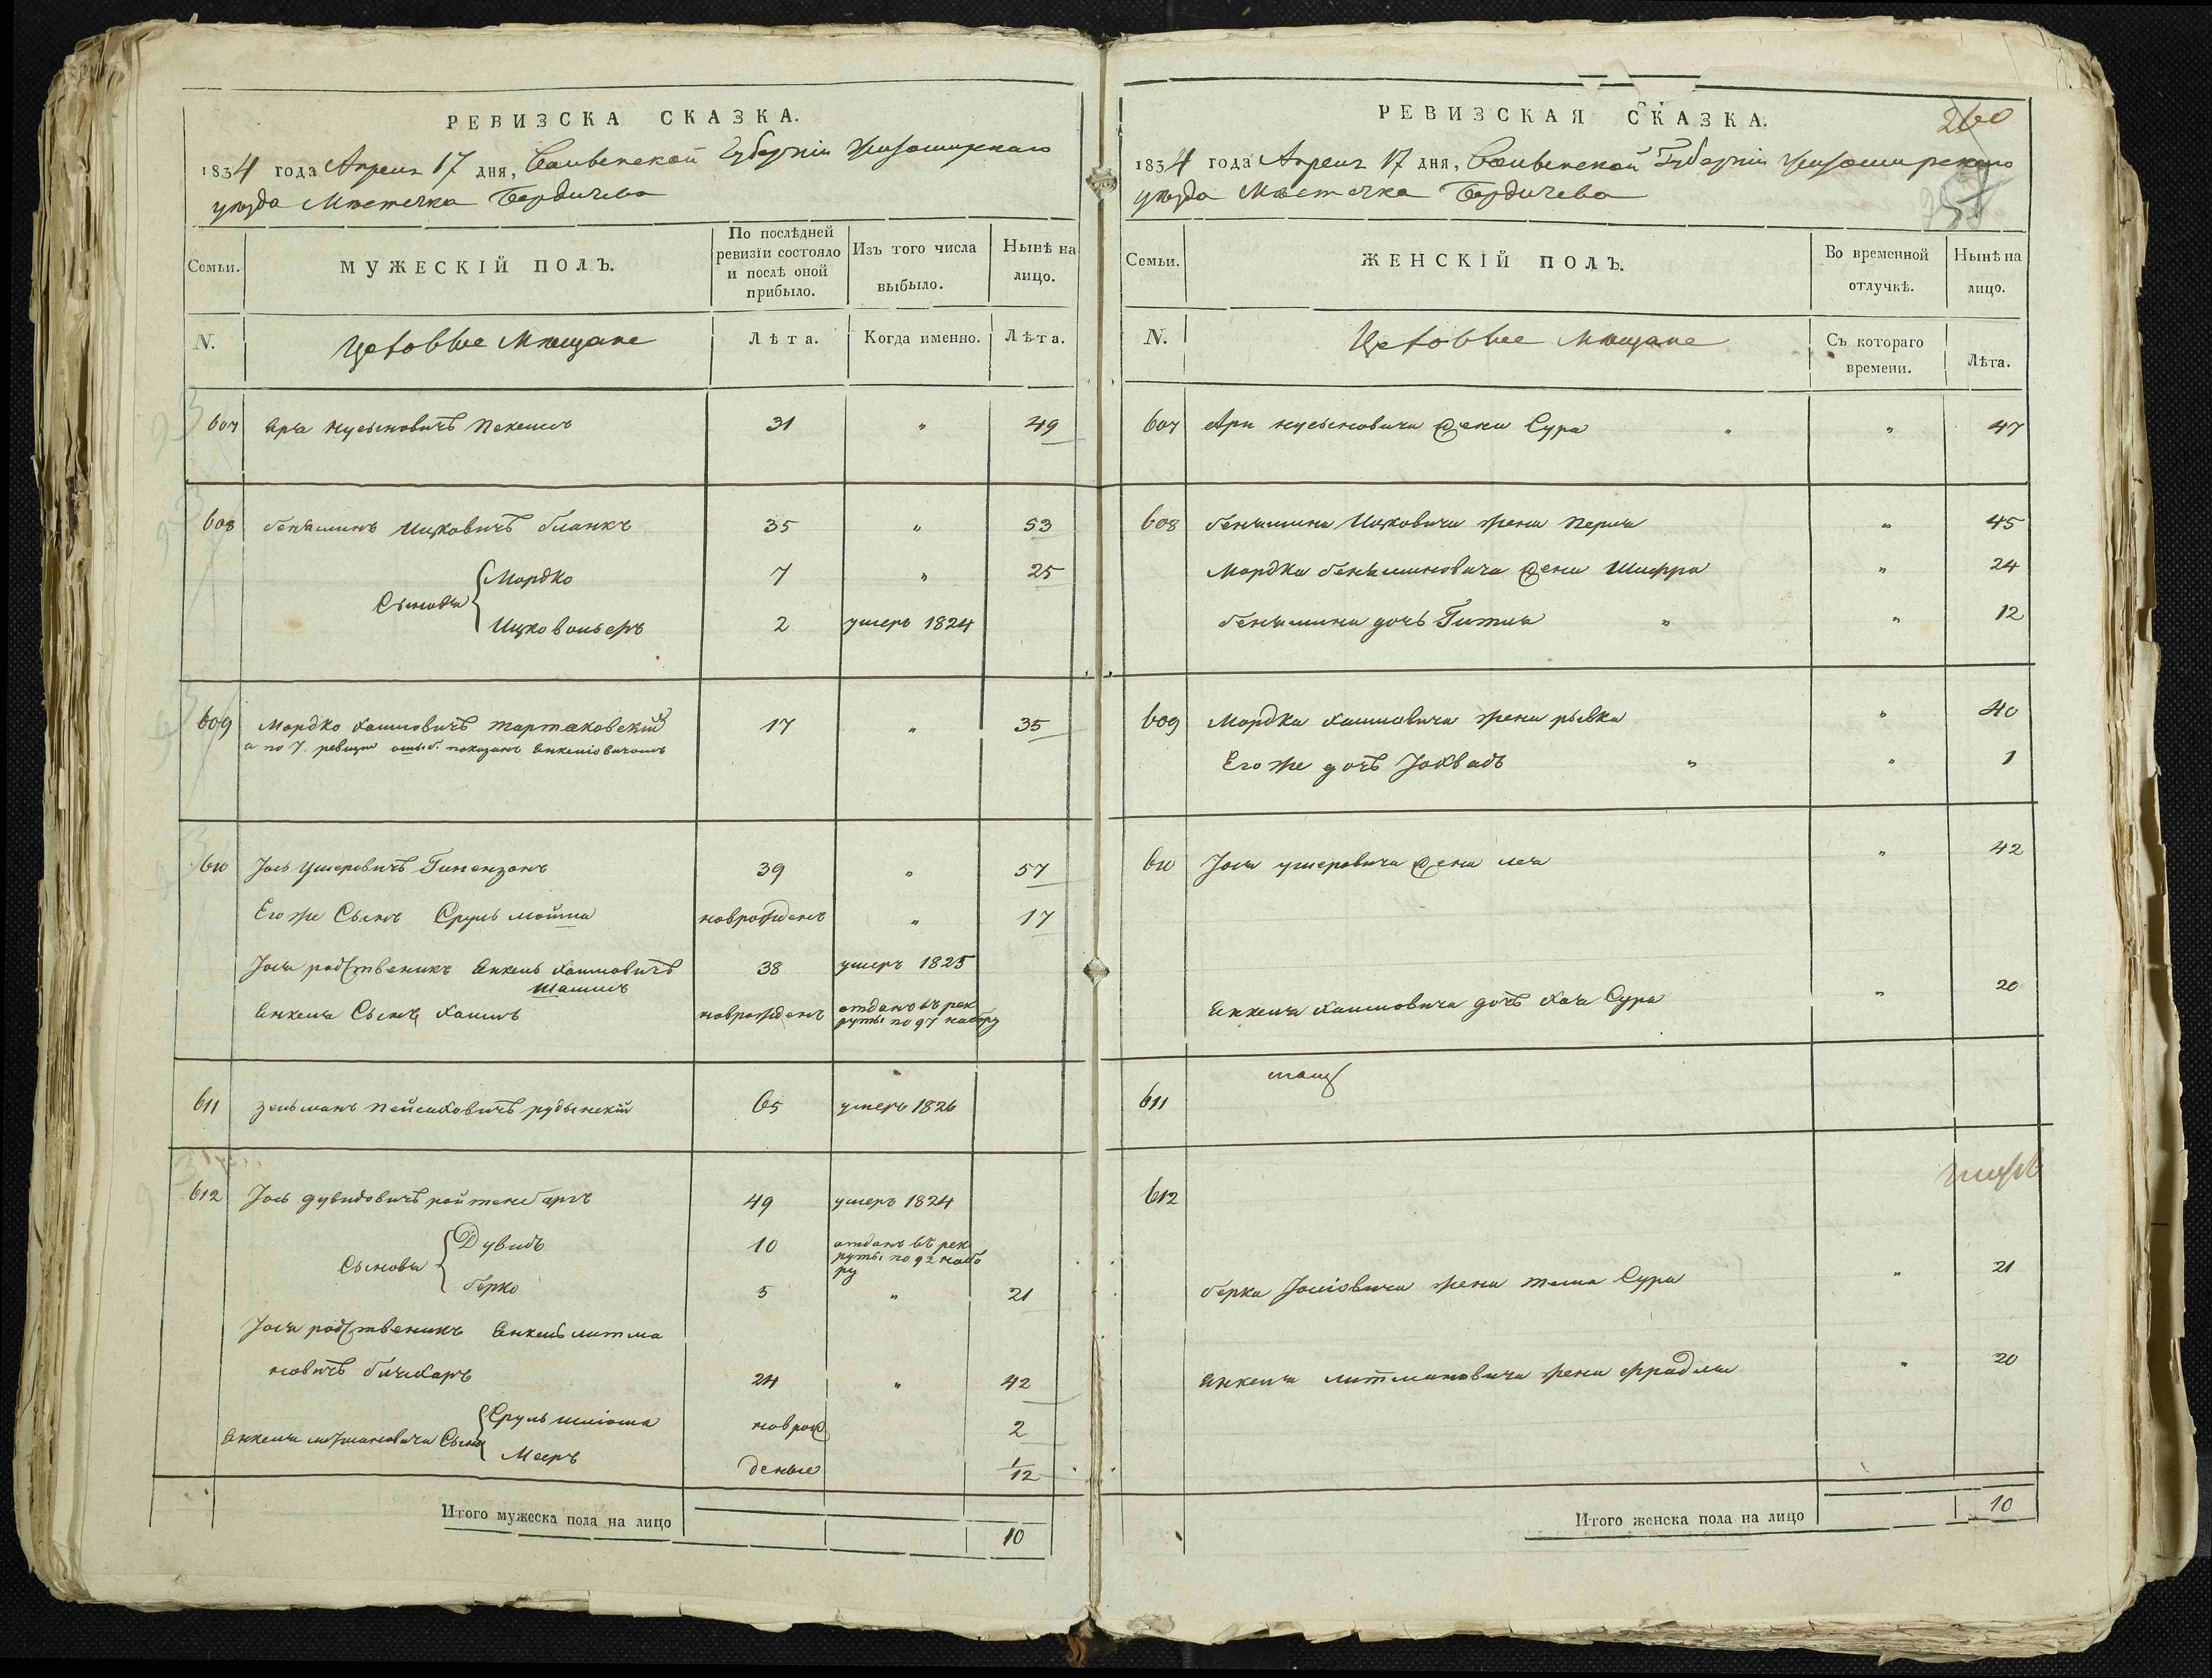 РЕВИЗСКА СКАЗКА.
1834 года Апреля 17 дня, Волынской Губерніи Житомирскаго
уѣзда Мѣстечка Бердичева
Семьи.
МУЖЕСКІЙ ПОЛЪ.
По послѣдней ревизіи состояло и послѣ оной прибыло.
Изъ того числа выбыло.
Нынѣ на лицо.
N.
Цеховые Мѣщане
Лѣта.
Когда именно.
Лѣта.
607 31 " 49
608 Беньяминъ Ицковичъ бланкъ 35 " 53
Сыновья
Мордко 7 " 25
Ицко вольфъ 2 умеръ 1824
609 Мордко хаимовичъ тартаковскій 17 " 35
а по 7. ревизіи ошиб. показанъ Янкеліовичомъ
610 Іось Ушеровичъ 39 " 57
Его же Сынъ Сруль мошка новрожденъ " 17
Іося родственикъ Янкель хаимовичъ 38 умеръ 1825
Янкеля Сынъ хаимъ новрожденъ отданъ въ рек
руты по 97 набору
611 зельманъ пейсиховичъ рудынскій 65 умеръ 1826
612 Іось дувидовичъ ройтенбаргъ 49 умеръ 1824
Сыновья
Дувидъ 10 отданъ въ рек
руты по 92 набо
ру
берко 5 " 21
Іося родственикъ Янкель литма
новичъ 24 " 42
Янкеля литмановича Сыны
Сруль шліома новрож 2
Мееръ деные 1/12
Итого мужеска пола на лицо 10
РЕВИЗСКАЯ СКАЗКА.
260
1834 года Апреля 17 дня, Волынской Губерніи Житомирскаго
уѣзда Мѣстечка Бердичева
Семьи.
ЖЕНСКІЙ ПОЛЪ.
Во временной отлучкѣ.
Нынѣ на лицо.
N.
Цеховые Мѣщане
Съ котораго времени.
Лѣта.
607 жена Сура " " 47
608 беньямина Ицковича жена Перля " 45
Мордка беньяминовича жена Шифра " 24
беньямина дочь Гитля " " 12
609 Мордка хаимовича жена рывка " 40
Его же дочь Іохвадъ " " 1
610 Іося ушеровича жена лея " 42
Янкеля хаимовича дочь хая Сура " 20
611
612
берка Іосіовича жена Сура " 21
Янкеля литмановича жена фрадля " 20
Итого женска пола на лицо 10